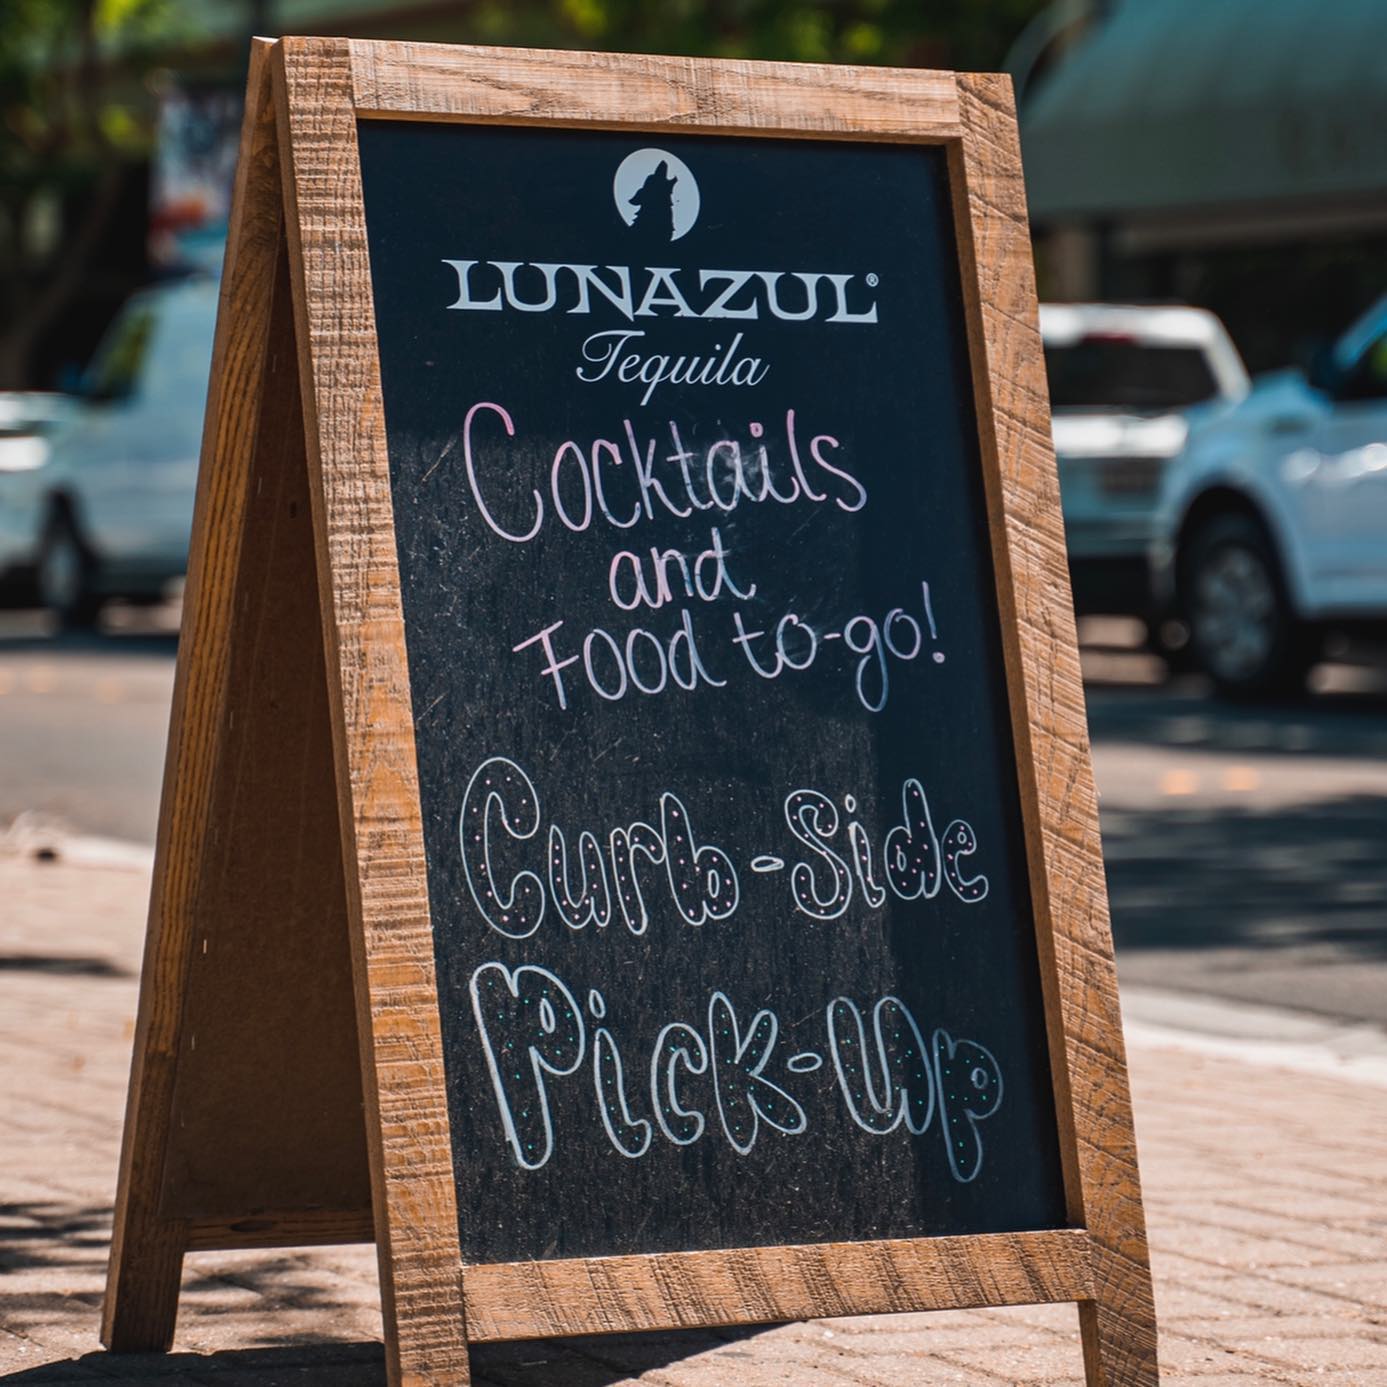 LUNAZUL®
Tequila
Cocktails
and
Food to-go!
Curb-Side
Pick-Up